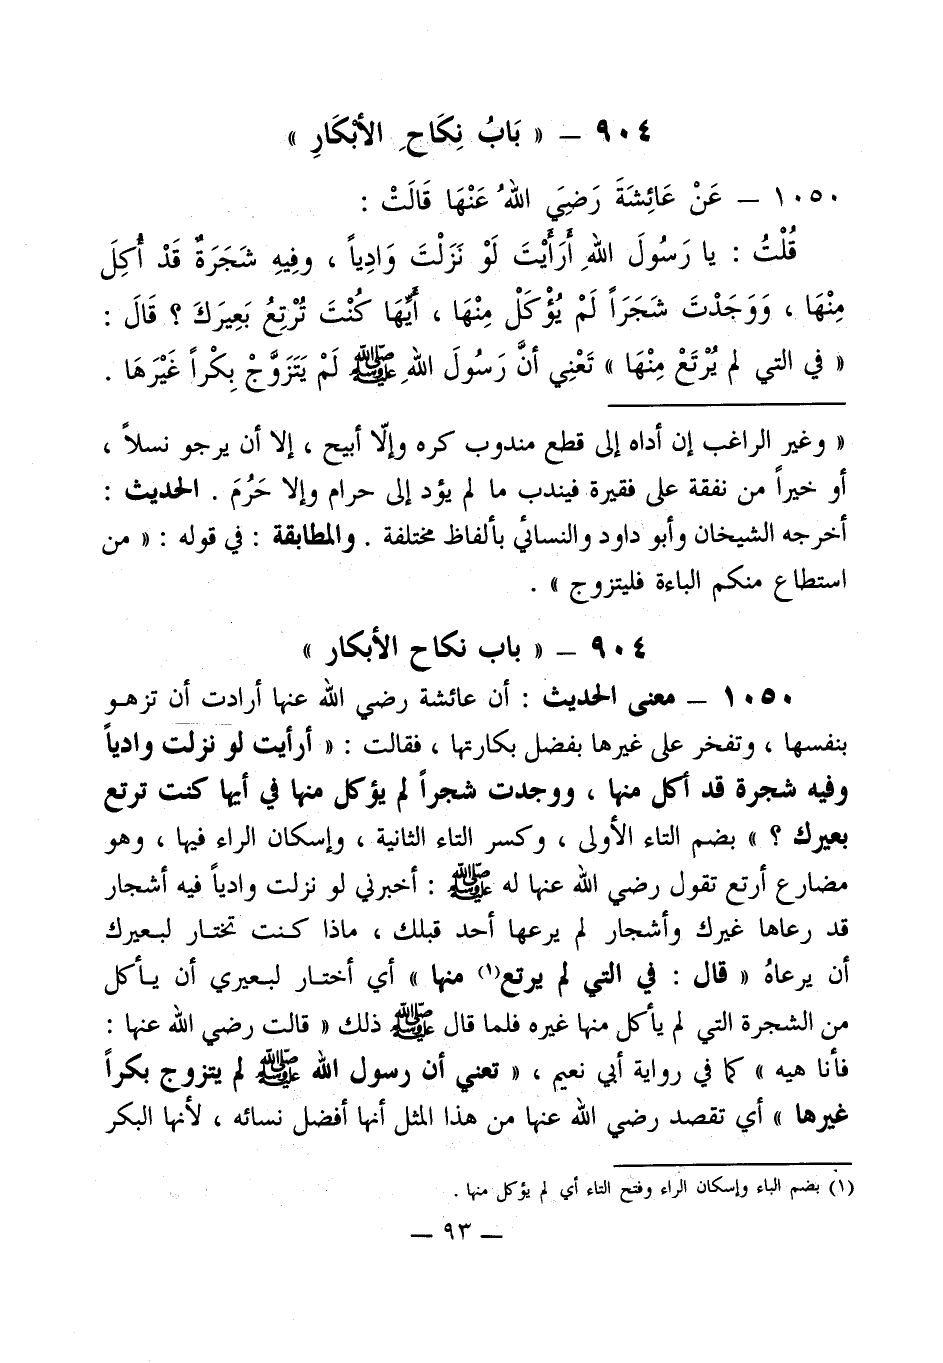 ٩٠٤ – « بَابُ نِكَاحِ الأبْكَارِ »
١٠٥٠ – عَنْ عَائِشَةَ رَضِيَ اللهُ عَنْهَا قَالَتْ :
قُلْتُ : يا رَسُولَ اللهِ أَرَأَيْتَ لَوْ نَزَلْتَ وَادِياً ، وفِيهِ شَجَرَةٌ قَدْ أُكِلَ
مِنْهَا ، وَوَجَدْتَ شَجَرَاً لَمْ يُؤْكَلْ مِنْهَا ، أَيُّهَا كُنْتَ تُرْتِعُ بَعِيرَكَ ؟ قَالَ :
« في التي لم يُرْتَعْ مِنْهَا » تَعْنِي أنَّ رَسُولَ اللهِ ﷺ لَمْ يَتَزَوَّجْ بِكْراً غَيْرَهَا .
« وغير الراغب إن أداه إلى قطع مندوب كره وإلّا أبيح ، إلا أن يرجو نسلاً ،
أو خيراً من نفقة على فقيرة فيندب ما لم يؤد إلى حرام وإلا حَرُمَ . الحديث :
أخرجه الشيخان وأبو داود والنسائي بألفاظ مختلفة . والمطابقة : في قوله : « من
استطاع منكم الباءة فليتزوج » .
٩٠٤ – « باب نكاح الأبكار »
١٠٥٠ – معنى الحديث : أن عائشة رضي الله عنها أرادت أن تزهو
بنفسها ، وتفخر على غيرها بفضل بكارتها ، فقالت : « أرأيت لو نزلت وادياً
وفيه شجرة قد أكل منها ، ووجدت شجراً لم يؤكل منها في أيها كنت ترتع
بعيرك ؟ » بضم التاء الأولى ، وكسر التاء الثانية ، وإسكان الراء فيها ، وهو
مضارع أرتع تقول رضي الله عنها له ﷺ : أخبرني لو نزلت وادياً فيه أشجار
قد رعاها غيرك وأشجار لم يرعها أحد قبلك ، ماذا كنت تختار لبعيرك
أن يرعاهُ « قال : في التي لم يرتع(١) منها » أي أختار لبعيري أن يأكل
من الشجرة التي لم يأكل منها غيره فلما قال ﷺ ذلك « قالت رضي الله عنها :
فأنا هيه » كما في رواية أبي نعيم ، « تعني أن رسول الله ﷺ لم يتزوج بكراً
غيرها » أي تقصد رضي الله عنها من هذا المثل أنها أفضل نسائه ، لأنها البكر
(١) بضم الباء وإسكان الراء وفتح التاء أي لم يؤكل منها .
– ٩٣ –